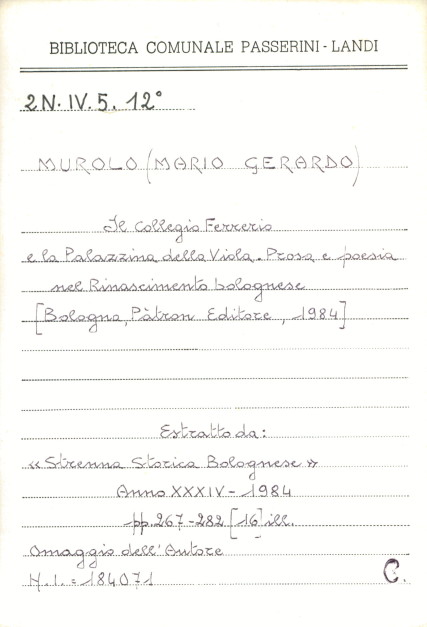 BIBLIOTECA COMUNALE PASSERINI - LANDI
2N. IV. 5. 12°
MUROLO (MARIO GERARDO)
Il Collegio Ferrerio
e la Palazzina della Viola. Prosa e poesia
nel Rinascimento bolognese
[Bologna, Pàtron Editore, 1984]
Estratto da:
«Strenna Storica Bolognese»
Anno XXXIV - 1984
pp. 267-282 [16] ill.
Omaggio dell'Autore
N.I. = 184071
C.